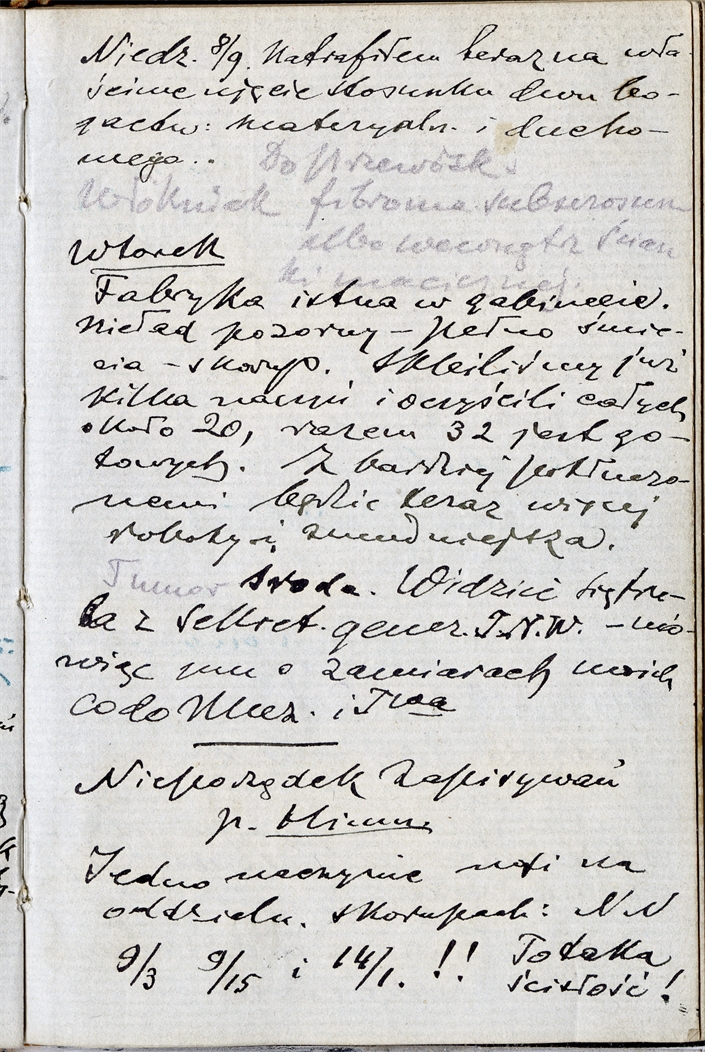 Niedz. 8/9. Natrafiłem teraz na wła-
ściwe ujęcie stosunku dwu bo-
gactw: materyaln. i ducho-
wego..
Do przewózk.
Włókniak fibroma subserosum
albo wewnątrz ścian
ki macicznej.
Wtorek
Fabryka istna w gabinecie.
nieład pozorny – pełno śmie-
cia – skorup. Skleiliśmy już
kilka naczyń i oczyścili całych
około 20, razem 32 jest go-
towych. Z bardziej potłuczo-
nemi będzie teraz więcej
roboty i żmudniejsza.
Tumor Środa. Widzieć się trze-
ba z Sekret. gener. T.N.W. – mó-
wiąc mu o zamiarach moich
co do Muz. i Twa
Nieporządek zapisywań
p.
Jedno naczynie nosi na
oddzieln. skorupach: NN
9/3 9/15 i 14/1. !! To taka
ścisłość!